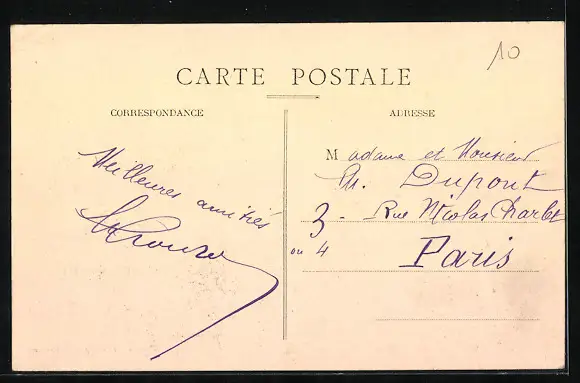 10
CARTE POSTALE
CORRESPONDANCE
ADRESSE
Meilleures amitiés
Madame et Monsieur
Ch. Dupont
3 - Rue Nicolas Charlet
ou 4
Paris